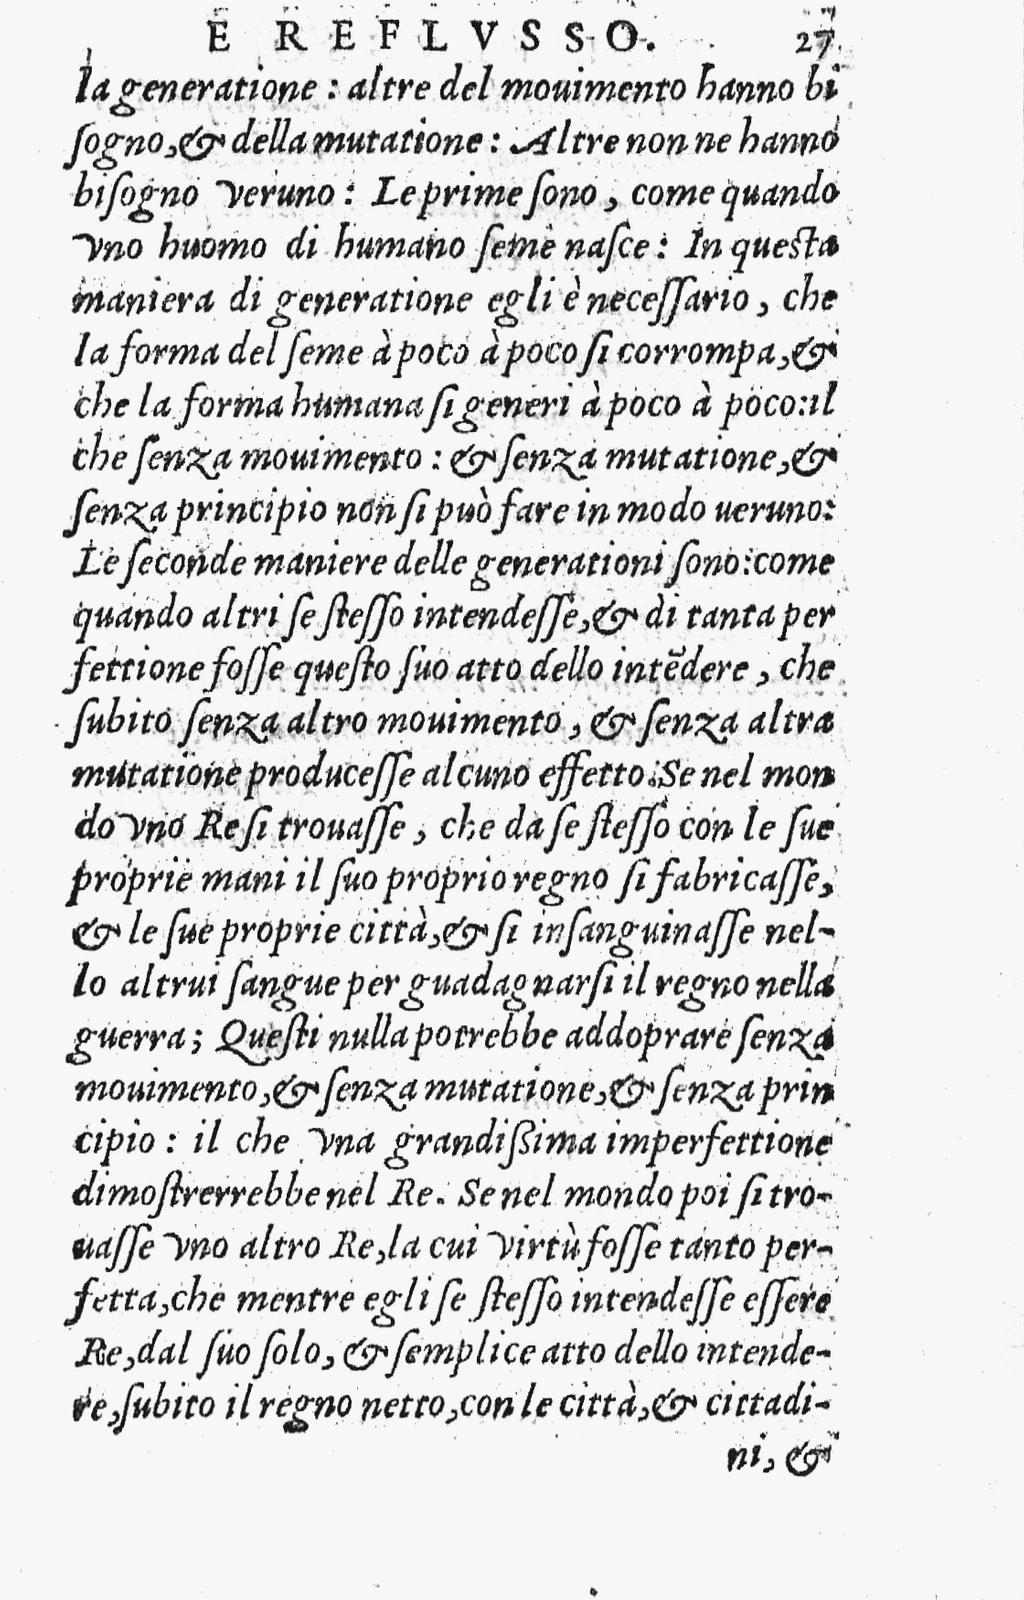 E REFLVSSO. 27
la generatione : altre del mouimento hanno bi
ſogno,& della mutatione : Altre non ne hanno
biſogno veruno : Le prime ſono , come quando
vno huomo di humano ſeme naſce : In queſta
maniera di generatione egli è neceſſario , che
la forma del ſeme à poco à poco ſi corrompa,&
che la forma humana ſi generi à poco à poco:il
che ſenza mouimento : & ſenza mutatione,&
ſenza principio non ſi può fare in modo ueruno:
Le ſeconde maniere delle generationi ſono:come
quando altri ſe ſteſſo intendeſſe,& di tanta per
fettione foſſe queſto ſuo atto dello intēdere , che
ſubito ſenza altro mouimento , & ſenza altra
mutatione produceſſe alcuno effetto.Se nel mon
do vno Re ſi trouaſſe , che da ſe ſteſſo con le ſue
proprie mani il ſuo proprio regno ſi fabricaſſe,
& le ſue proprie città,& ſi inſanguinaſſe nel-
lo altrui ſangue per guadagnarſi il regno nella
guerra ; Queſti nulla potrebbe addoprare ſenza
mouimento,& ſenza mutatione,& ſenza prin
cipio : il che vna grandißima imperfettione
dimoſtrerrebbe nel Re. Se nel mondo poi ſi tro-
uaſſe vno altro Re,la cui virtù foſſe tanto per-
fetta,che mentre egli ſe ſteſſo intendeſſe eſſere
Re,dal ſuo ſolo, & ſemplice atto dello intende-
re,ſubito il regno netto,con le città,& cittadi-
ni, &